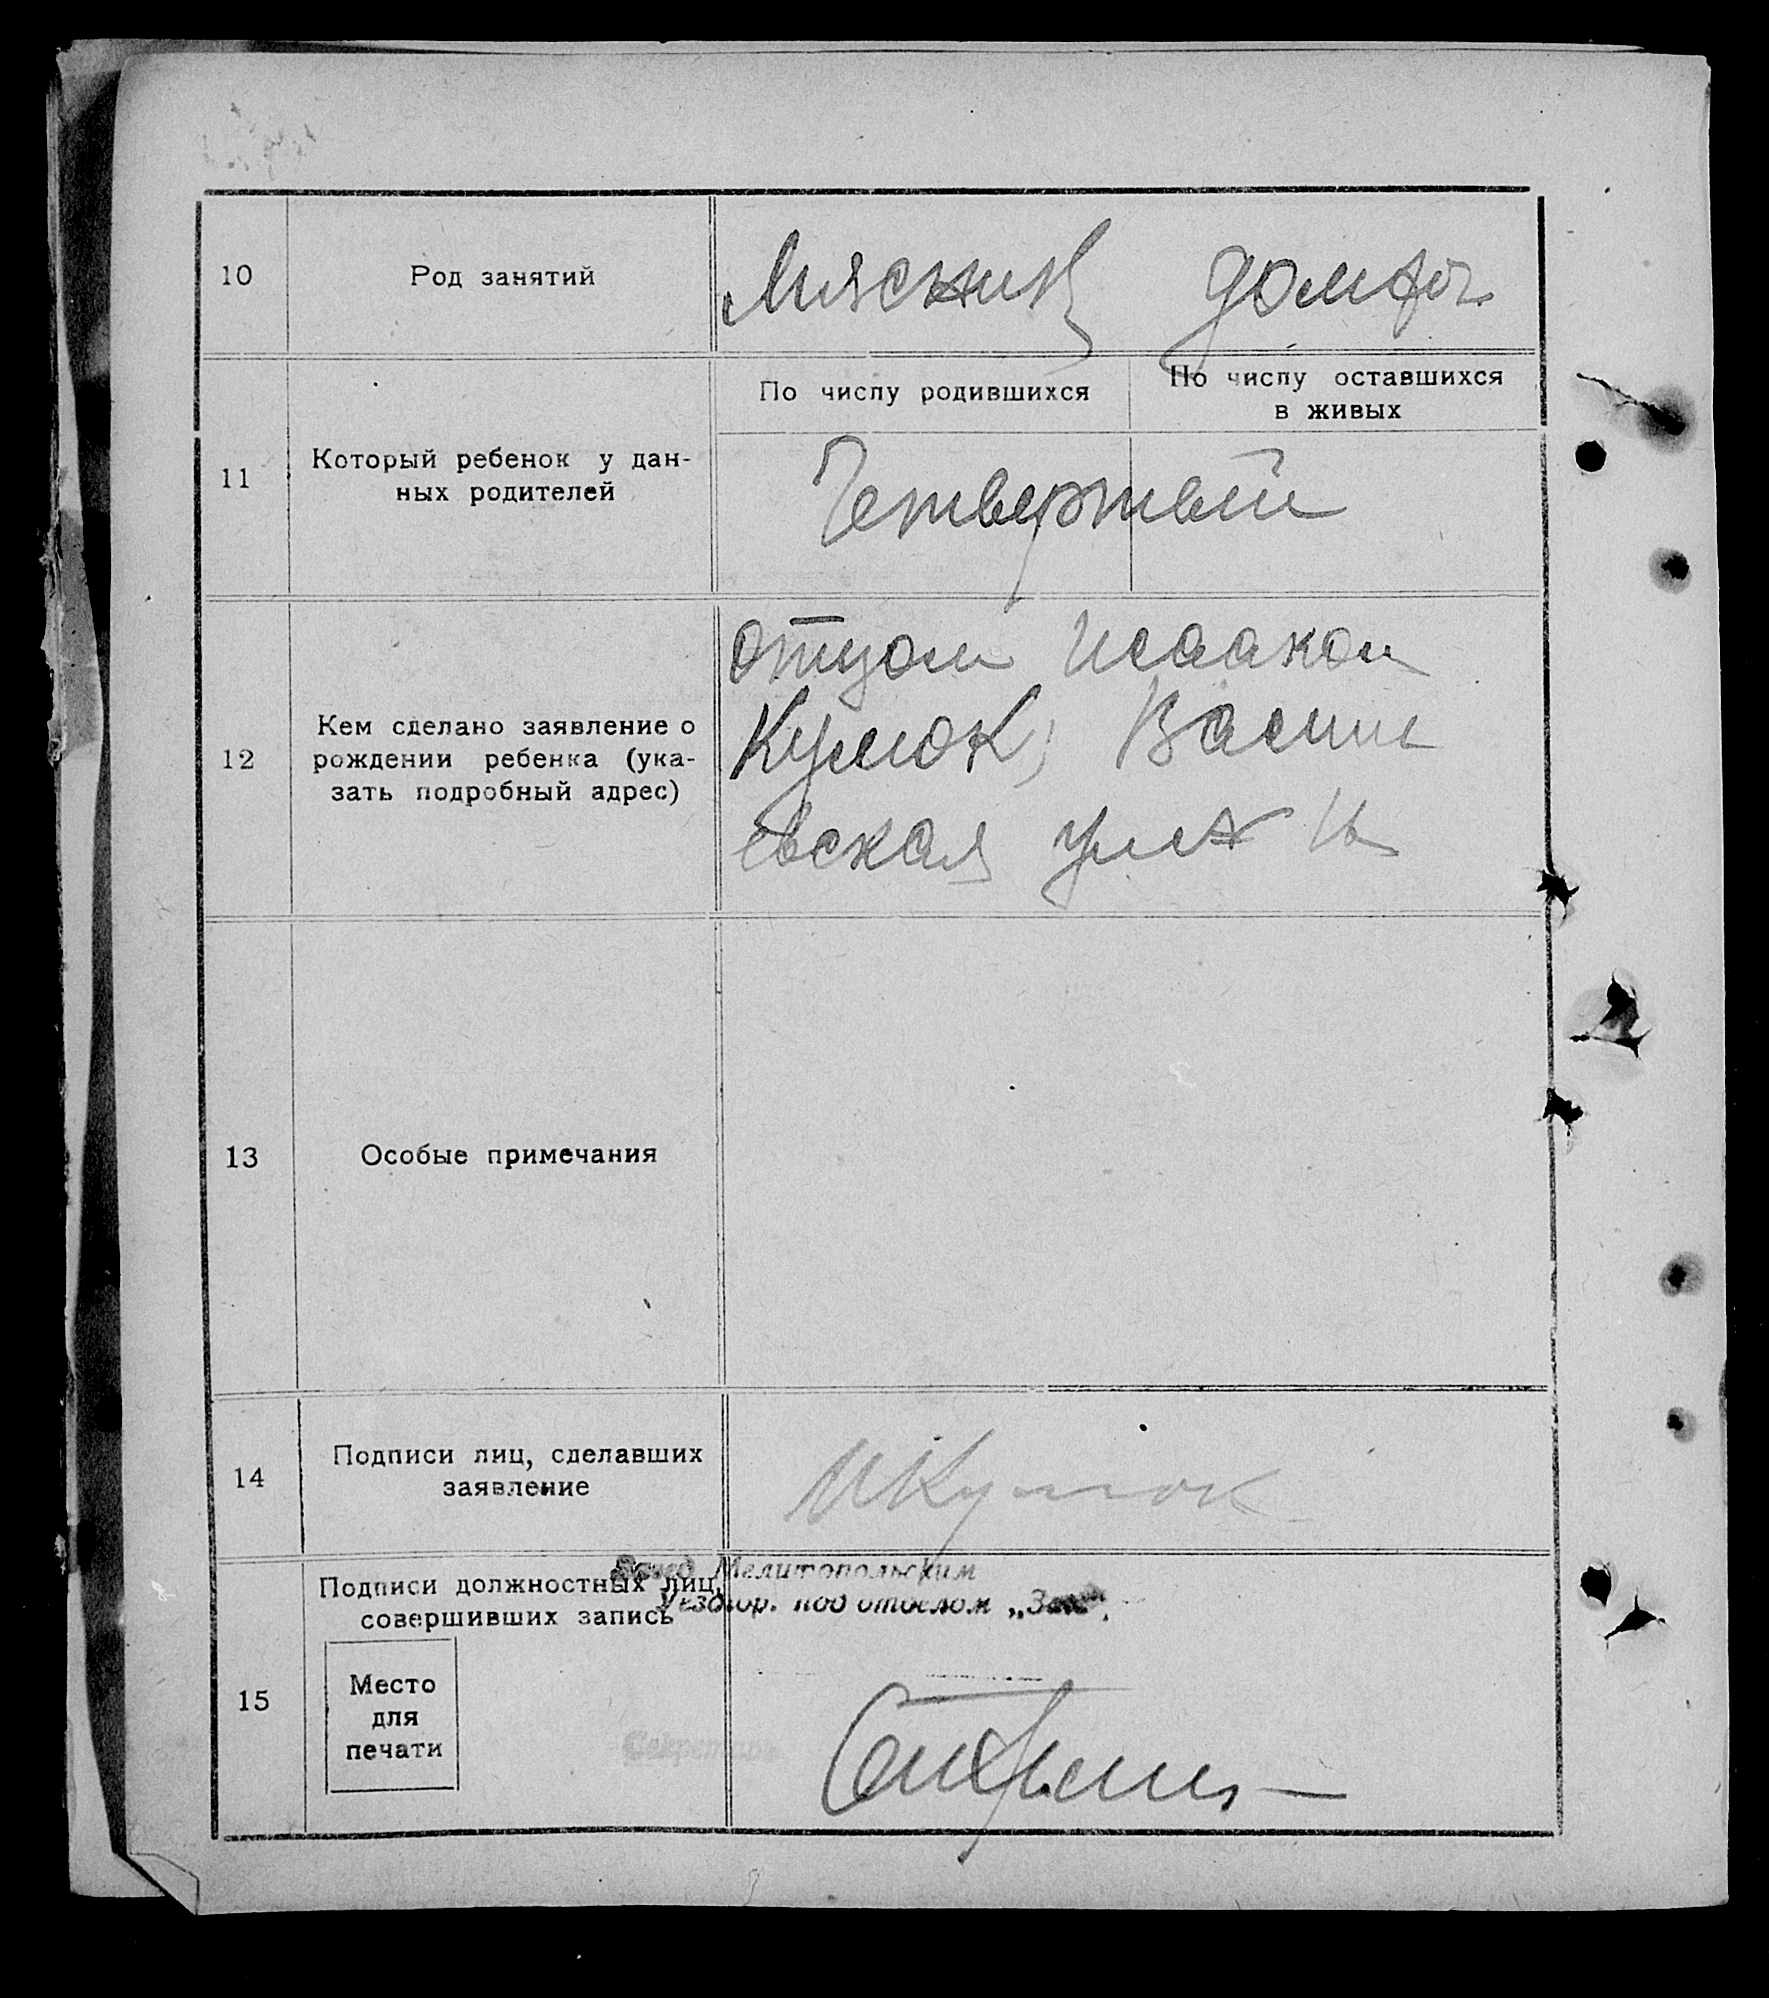 10 Род занятий Мясник домхоз.
По числу родившихся По числу оставшихся
в живых
11 Который ребенок у дан-
ных родителей
Четвертый
отцом Исааком
12 Кем сделано заявление о
рождении ребенка (ука-
зать подробный адрес)
Кумок, Васил
евская ул
13 Особые примечания
14 Подписи лиц, сделавших
заявление
ИКумок
Завед Мелитопольским
15 Подписи должностных лиц,
совершивших запись
Уездгор. подотделом „Загс".
Место
для
печати
Секретарь